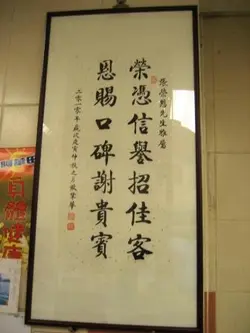 張榮恩先生雅屬
榮憑信譽招佳客
恩賜口碑謝貴賓
二零一零年歲次庚寅仲秋之月
自維健店